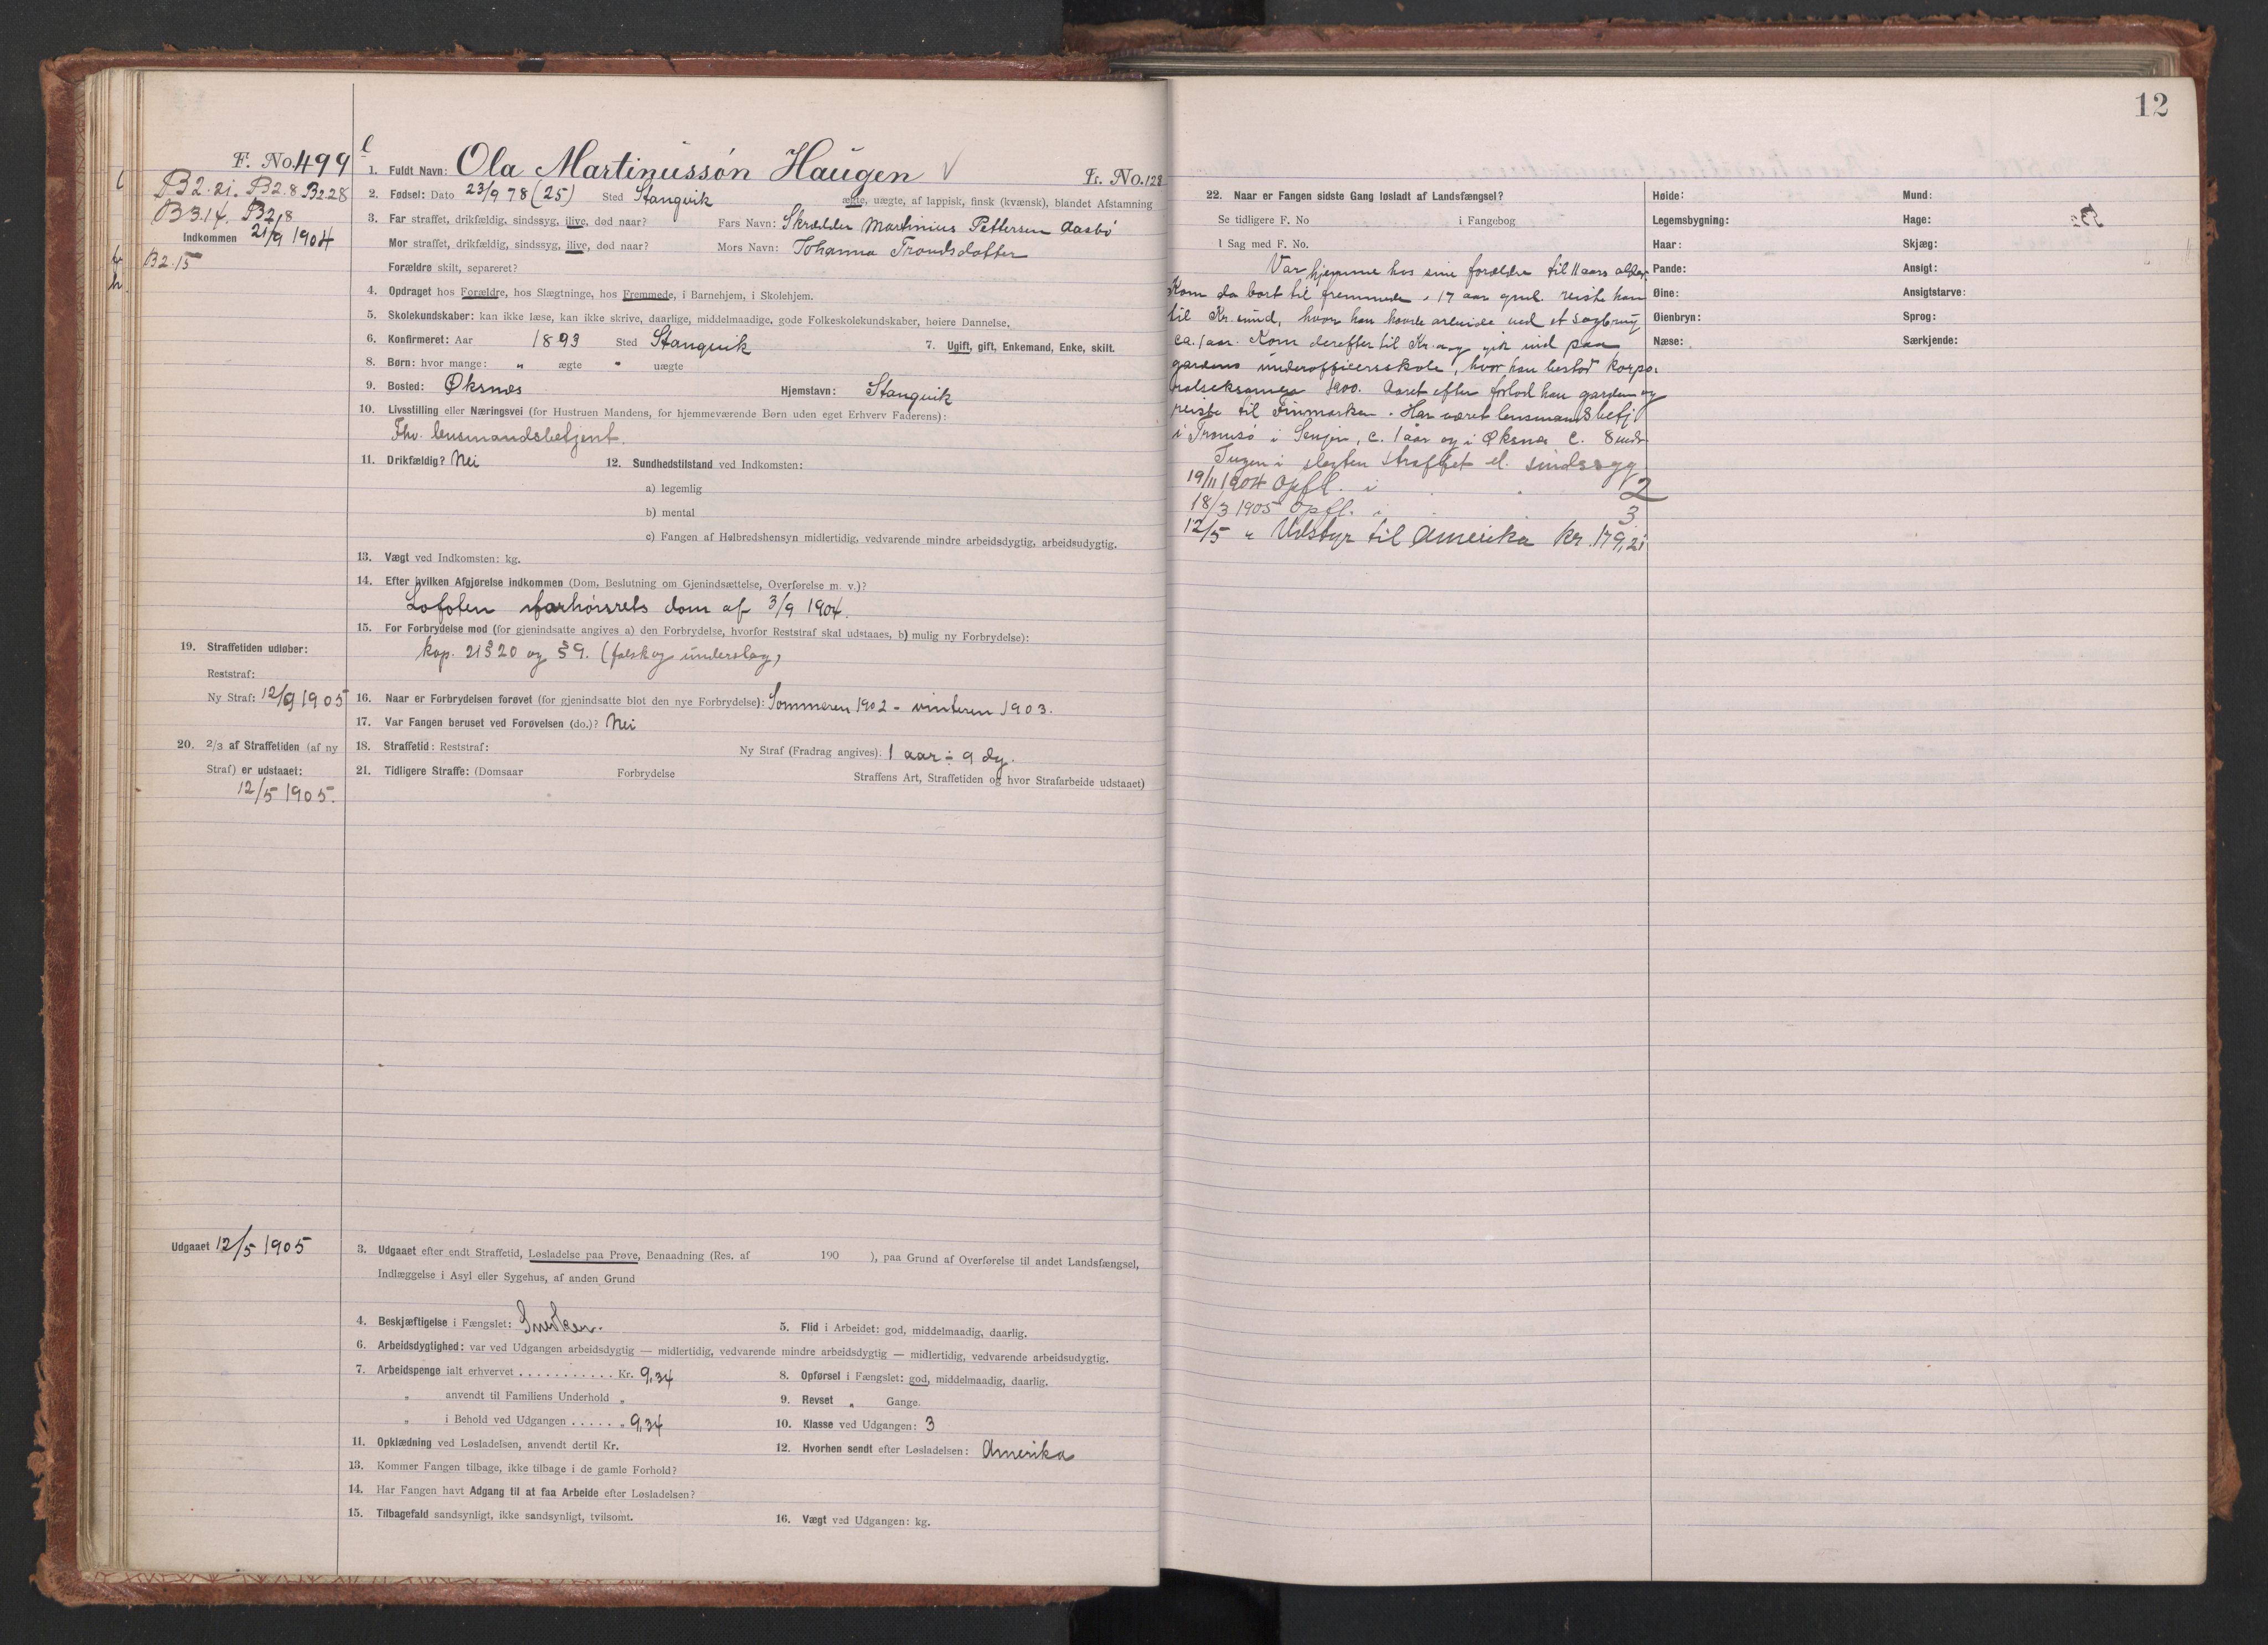 12
F. No. 499
B2.21. B2.8 B2.28
B3.14. B2.8
Indkommen 21/9 1904
B2.15
1. Fuldt Navn: Ola Martinussøn Haugen
Fr. No. 128
2. Fødsel: Dato 23/9 78 (25) Sted Stangvik ægte, uægte, af lappisk, finsk (kvænsk), blandet Afstamning
3. Far straffet, drikfældig, sindssyg, ilive, død naar? Fars Navn: Skrædder Martinius Pettersen Aasbø
Mor straffet, drikfældig, sindssyg, ilive, død naar? Mors Navn: Johanna Trondsdatter
Forældre skilt, separeret?
4. Opdraget hos Forældre, hos Slægtninge, hos Fremmede, i Barnehjem, i Skolehjem.
5. Skolekundskaber: kan ikke læse, kan ikke skrive, daarlige, middelmaadige, gode Folkeskolekundskaber, høiere Dannelse.
6. Konfirmeret: Aar 1893 Sted Stangvik 7. Ugift, gift, Enkemand, Enke, skilt.
8. Børn: hvor mange: „ ægte „ uægte
9. Bosted: Øksnes Hjemstavn: Stangvik
10. Livsstilling eller Næringsvei (for Hustruen Mandens, for hjemmeværende Børn uden eget Erhverv Faderens):
Fhv. lensmandsbetjent.
11. Drikfældig? Nei 12. Sundhedstilstand ved Indkomsten:
a) legemlig
b) mental
c) Fangen af Helbredshensyn midlertidig, vedvarende mindre arbeidsdygtig, arbeidsudygtig.
13. Vægt ved Indkomsten: kg.
14. Efter hvilken Afgjørelse indkommen (Dom, Beslutning om Gjenindsættelse, Overførelse m. v.)?
Lofoten forhørsrets dom af 3/9 1904.
15. For Forbrydelse mod (for gjenindsatte angives a) den Forbrydelse, hvorfor Reststraf skal udstaaes, b) mulig ny Forbrydelse):
kap. 21 § 20 og § 9. (falsk og underslag)
19. Straffetiden udløber:
Reststraf:
Ny Straf: 12/9 1905
16. Naar er Forbrydelsen forøvet (for gjenindsatte blot den nye Forbrydelse): Sommeren 1902 - vinteren 1903.
17. Var Fangen beruset ved Forøvelsen (do.)? Nei
20. 2/3 af Straffetiden (af ny
Straf) er udstaaet:
12/5 1905.
18. Straffetid: Reststraf: Ny Straf (Fradrag angives). 1 aar ÷ 9 dg.
21. Tidligere Straffe: (Domsaar Forbrydelse Straffens Art, Straffetiden og hvor Strafarbeide udstaaet)
Udgaaet 12/5 1905
3. Udgaaet efter endt Straffetid, Løsladelse paa Prøve, Benaadning (Res. af 190 ), paa Grund af Overførelse til andet Landsfængsel,
Indlæggelse i Asyl eller Sygehus, af anden Grund
4. Beskjæftigelse i Fængslet: Snedker. 5. Flid i Arbeidet: god, middelmaadig, daarlig.
6. Arbeidsdygtighed: var ved Udgangen arbeidsdygtig — midlertidig, vedvarende mindre arbeidsdygtig — midlertidig, vedvarende arbeidsudygtig.
7. Arbeidspenge ialt erhvervet . . . . . . . . . . . Kr. 9,34 8. Opførsel i Fængslet: god, middelmaadig, daarlig.
„ anvendt til Familiens Underhold „ 9. Revset „ Gange.
„ i Behold ved Udgangen . . . . . „ 9,34 10. Klasse ved Udgangen: 3
11. Opklædning ved Løsladelsen, anvendt dertil Kr. 12. Hvorhen sendt efter Løsladelsen: Amerika
13. Kommer Fangen tilbage, ikke tilbage i de gamle Forhold?
14. Har Fangen havt Adgang til at faa Arbeide efter Løsladelsen?
15. Tilbagefald sandsynligt, ikke sandsynligt, tvilsomt. 16. Vægt ved Udgangen: kg.
22. Naar er Fangen sidste Gang løsladt af Landsfængsel?
Se tidligere F. No i Fangebog
I Sag med F. No.
Var hjemme hos sine forældre til 11 aars alder.
Kom da bort til fremmede. 17 aar gml. reiste han
til Kr.sund, hvor han havde arbeide ved et sagbrug
ca. 1 aar. Kom derefter til Kr.a og gik ind paa
gardens underofficersskole, hvor han bestod korpo-
ralseksamen 1900. Aaret efter forlod han garden og
reiste til Finmarken. Har været lensmandsbetj.
i Tromsø i Senjen, c. 1 aar og i Øksnes c. 8 mdr.
Ingen i slegten straffet el. sindssyg
19/11 1904 Opfl. i 2
18/3 1905 Opfl. i 3
12/5 „ Udstyr til Amerika kr. 179,21
Høide: Mund:
Legemsbygning: Hage:
Haar: Skjæg:
Pande: Ansigt:
Øine: Ansigtsfarve:
Øienbryn: Sprog:
Næse: Særkjende: